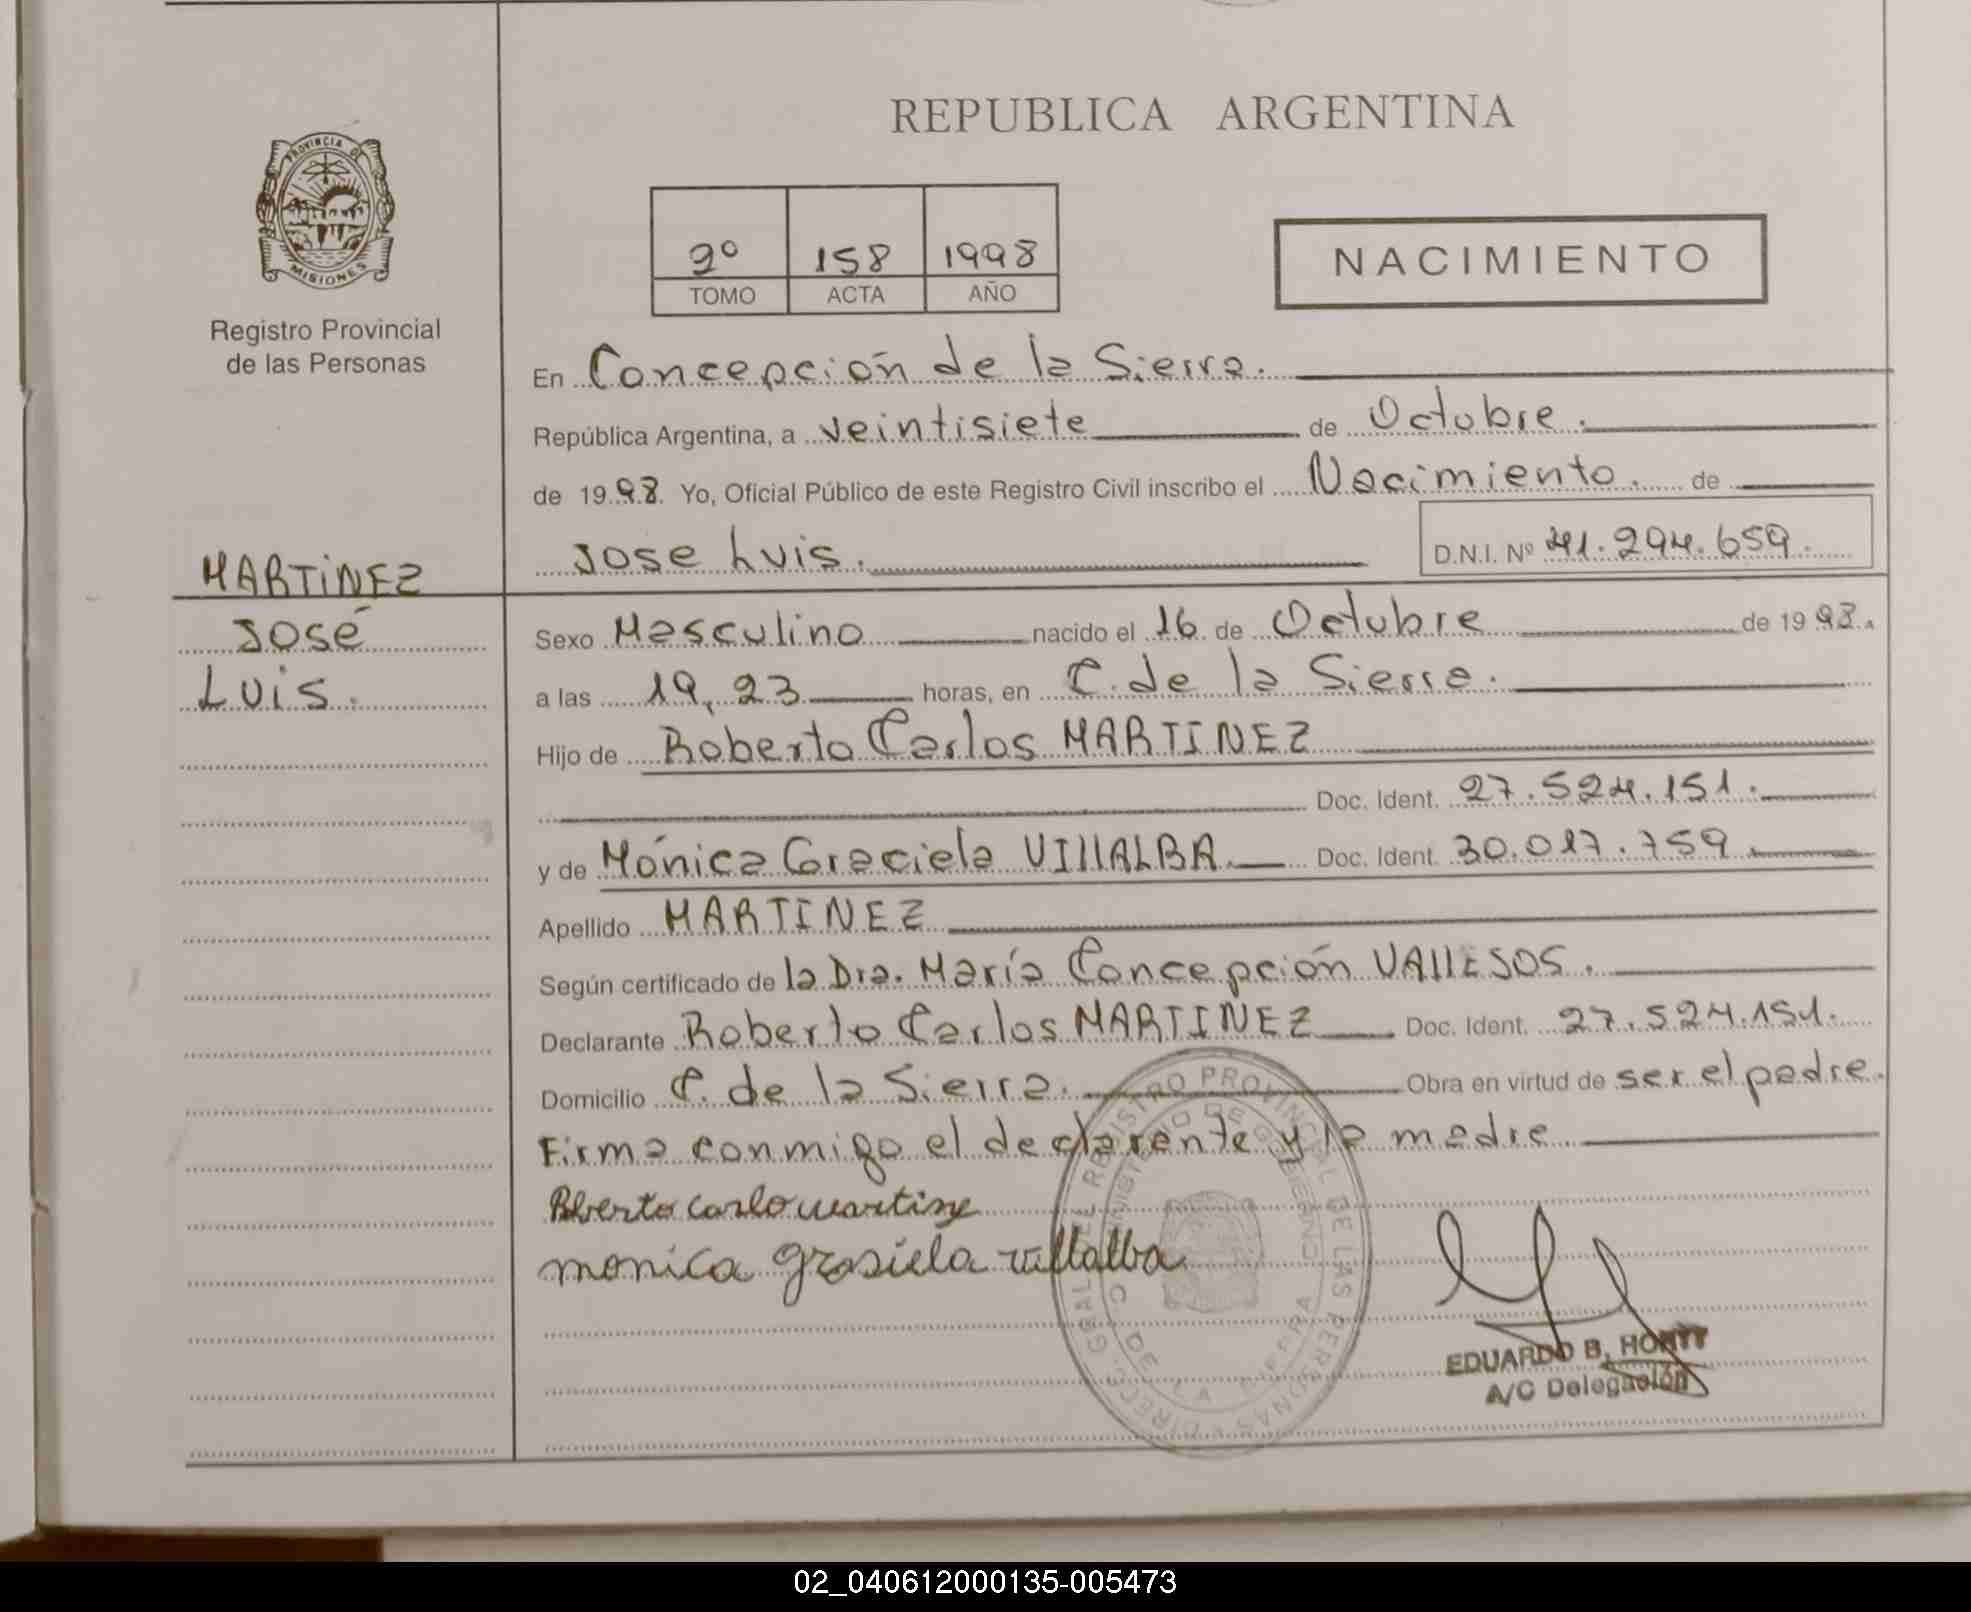 REPUBLICA ARGENTINA
PROVINCIA DE
MISIONES
Registro Provincial
de las Personas
2º 158 1998
TOMO ACTA AÑO
NACIMIENTO
En Concepción de la Sierra.
República Argentina, a veintisiete de Octubre.
de 1998. Yo, Oficial Público de este Registro Civil inscribo el Nacimiento. de
Jose Luis. D.N.I. Nº 41.294.659.
MARTINEZ
José
Luis.
Sexo Masculino nacido el 16 de Octubre de 1998.
a las 19,23 horas, en C. de la Sierra.
Hijo de Roberto Carlos MARTINEZ
Doc. Ident. 27.524.151.
y de Mónica Graciela VIllALBA. Doc. Ident. 30.017.759.
Apellido MARTINEZ
Según certificado de la Dra. María Concepción VAllESOS.
Declarante Roberto Carlos MARTINEZ Doc. Ident. 27.524.151.
Domicilio C. de la Sierra. Obra en virtud de ser el padre.
Firma conmigo el declarante y la madre
Roberto Carlo martinz
monica grasiela villalba
DIRECC. GRAL. DEL REGISTRO PROVINCIAL DE LAS PERSONAS
MINISTERIO DE GOBIERNO
C. DE LA SIERRA
EDUARDO B.
A/C Delegación
02_040612000135-005473